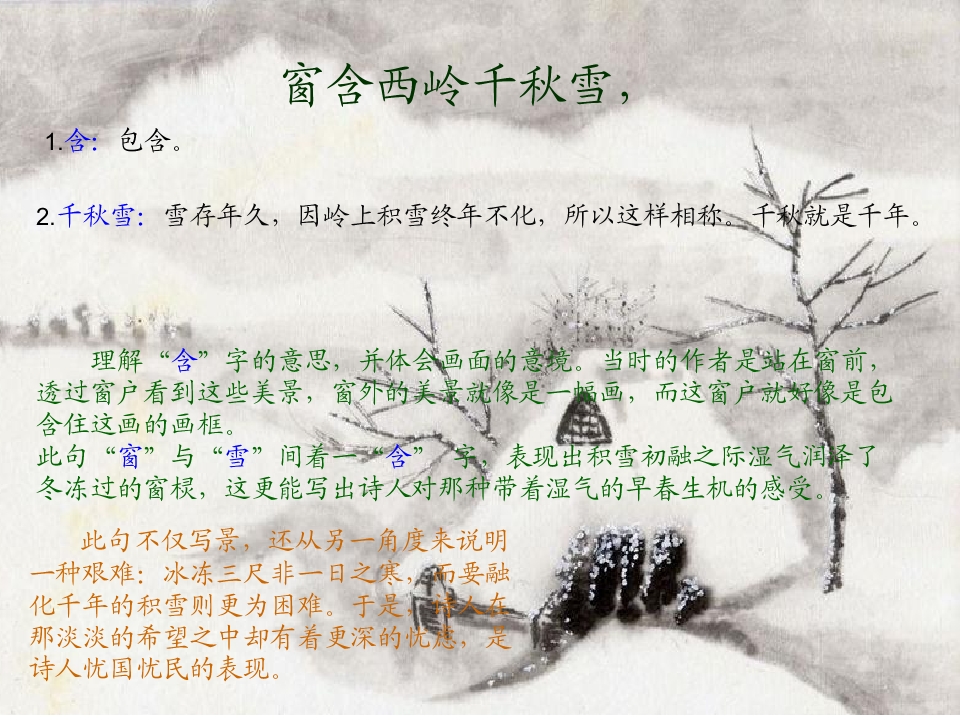 窗含西岭千秋雪，
1.含：包含。
2.千秋雪：雪存年久，因岭上积雪终年不化，所以这样相称。千秋就是千年。
理解“含”字的意思，并体会画面的意境。当时的作者是站在窗前，
透过窗户看到这些美景，窗外的美景就像是一幅画，而这窗户就好像是包
含住这画的画框。
此句“窗”与“雪”间着一“含” 字，表现出积雪初融之际湿气润泽了
冬冻过的窗棂，这更能写出诗人对那种带着湿气的早春生机的感受。
此句不仅写景，还从另一角度来说明
一种艰难：冰冻三尺非一日之寒，而要融
化千年的积雪则更为困难。于是，诗人在
那淡淡的希望之中却有着更深的忧虑，是
诗人忧国忧民的表现。